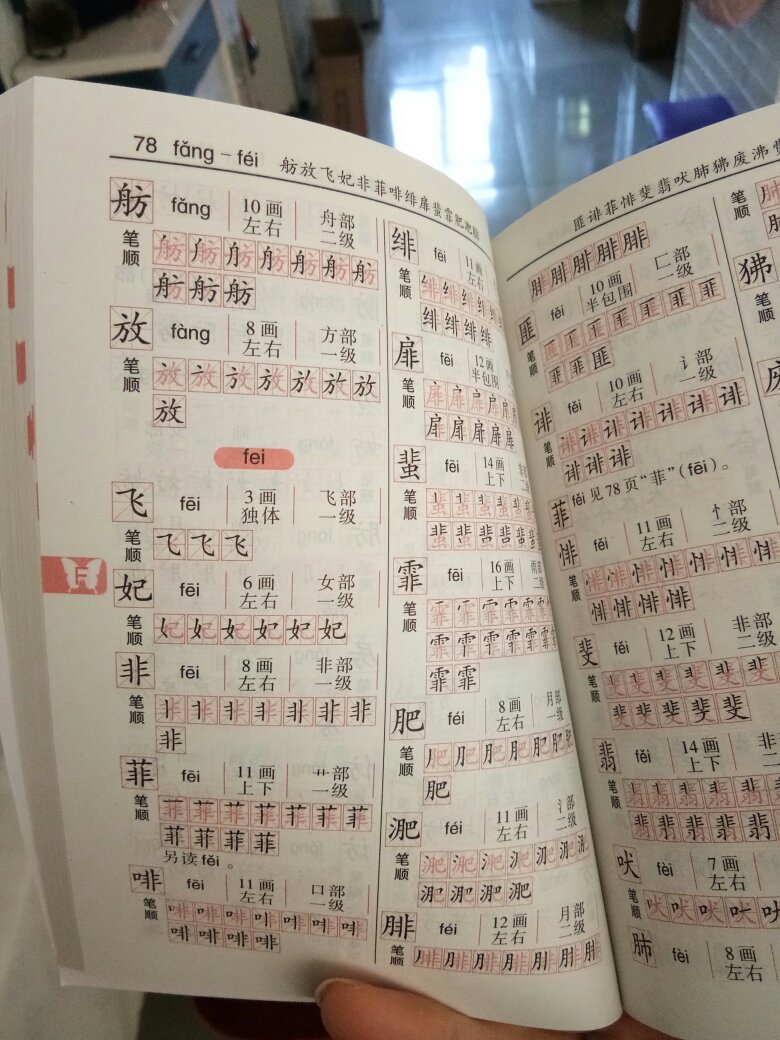 78 fǎng – féi 舫放飞妃非菲啡绯扉蜚霏肥淝腓
舫 fǎng 10画 舟部
左右 二级
笔顺 舫舫舫舫舫舫舫
舫舫舫
放 fàng 8画 方部
左右 一级
笔顺 放放放放放放放
放
fei
飞 fēi 3画 飞部
独体 一级
笔顺 飞飞飞
妃 fēi 6画 女部
左右 一级
笔顺 妃妃妃妃妃妃
非 fēi 8画 非部
左右 一级
笔顺 非非非非非非非
非
菲 fēi 11画 艹部
上下 一级
笔顺 菲菲菲菲菲菲菲
菲菲菲菲
另读fěi。
啡 fēi 11画 口部
左右 一级
笔顺 啡啡啡啡啡啡啡
啡啡啡啡
F
绯 fēi 11画
左右
笔顺 绯绯绯绯绯绯绯
绯绯绯绯
扉 fēi 12画
半包围
笔顺 扉扉扉扉扉扉
扉扉扉扉扉
蜚 fēi 14画
上下
笔顺 蜚蜚蜚蜚蜚
蜚蜚蜚蜚蜚
霏 fēi 16画 雨部
上下 二级
笔顺 霏霏霏霏霏霏
霏霏霏霏霏霏
霏霏
肥 féi 8画 月部
左右 一级
笔顺 肥肥肥肥肥肥
肥
淝 féi 11画 氵部
左右 二级
笔顺 淝淝淝淝淝淝淝
淝淝淝淝
腓 féi 12画 月部
左右 二级
笔顺 腓腓腓腓腓腓腓
匪诽菲悱斐翡吠肺狒废沸费
腓腓腓腓腓
匪 fěi 10画 匚部
半包围 一级
笔顺 匪匪匪匪匪匪匪
匪匪匪
诽 fěi 10画 讠部
左右 一级
笔顺 诽诽诽诽诽诽诽
诽诽诽
菲 fěi 见78页“菲”(fēi)。
悱 fěi 11画 忄部
左右 二级
笔顺 悱悱悱悱悱悱悱
悱悱悱悱
斐 fěi 12画 非部
上下 二级
笔顺 斐斐斐斐斐斐斐
斐斐斐斐斐
翡 fěi 14画
上下
笔顺 翡翡翡翡翡翡
翡翡翡翡翡翡
吠 fèi 7画
左右
笔顺 吠吠吠吠吠
肺 fèi 8画
左右
狒
笔顺
废